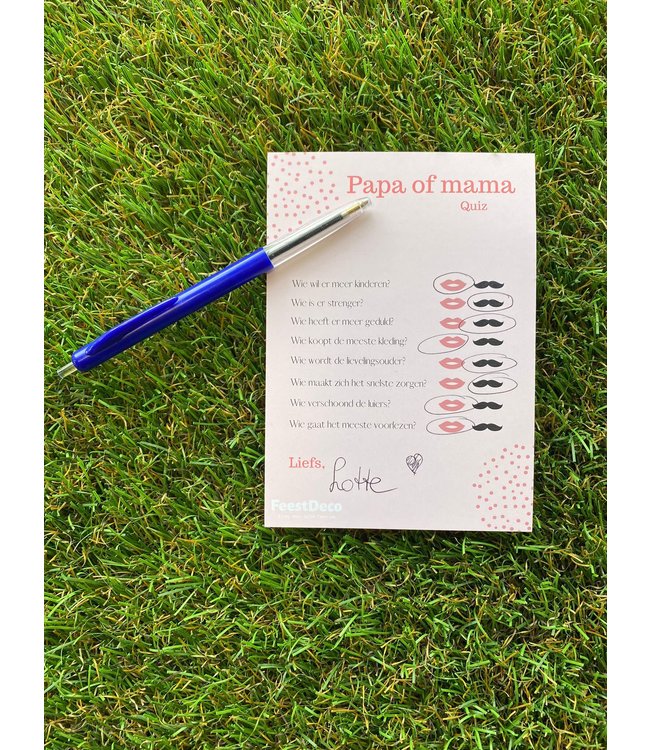 Papa of mama
Quiz
Wie wil er meer kinderen?
Wie is er strenger?
Wie heeft er meer geduld?
Wie koopt de meeste kleding?
Wie wordt de lievelingsouder?
Wie maakt zich het snelste zorgen?
Wie verschoond de luiers?
Wie gaat het meeste voorlezen?
Liefs, Lotte
FeestDeco